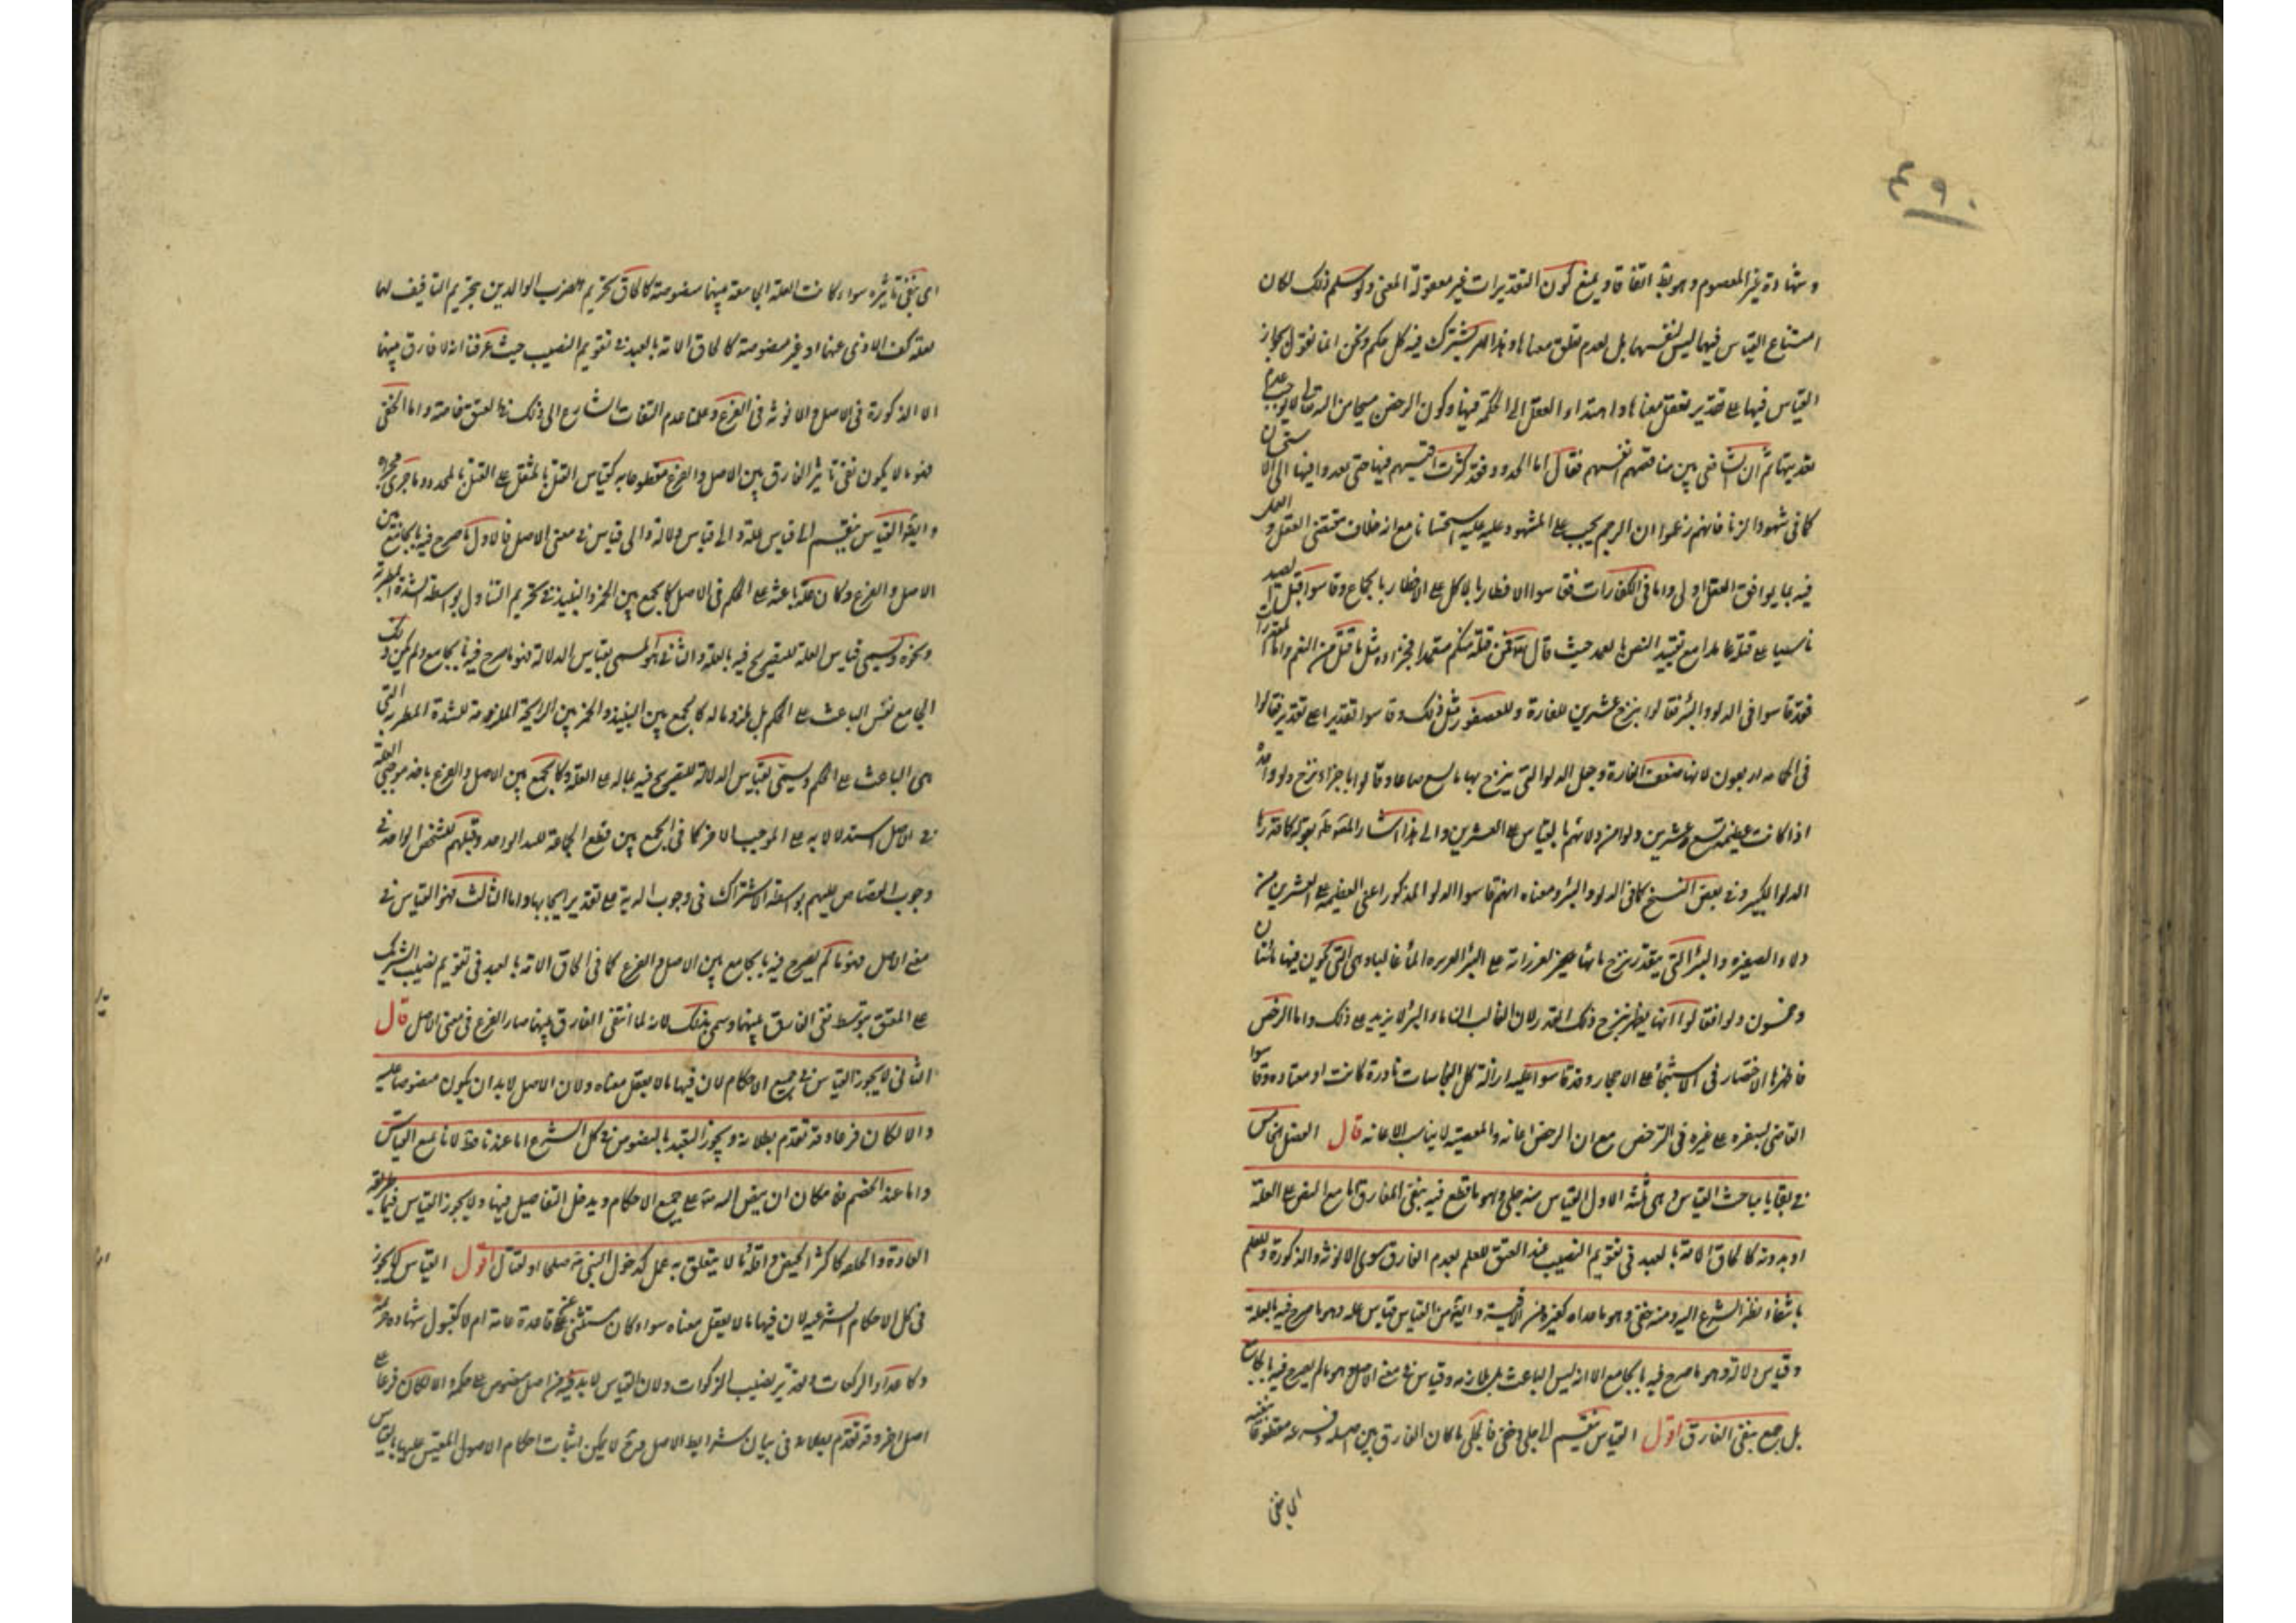 ٤٩٠
وشهادة غير المعصوم وهو بط اتفاقا ويمنع كون التقديرات غير معقولة المعنى ولو سلم ذلك لكان
امتناع القياس فيها ليس لنفسها بل لعدم تعقل معناها وهذا امر يشترك فيه كل حكم ونحن انما نقول بجواز
القياس فيها على تقدير تعقل معناها واهتداء العقل الى الحكمة فيها وكون الرخص منحا من الله تعالى لا يوجب عدم
تعديتها ثم ان الشافعي بين مناقضتهم انفسهم فقال اما الحدود فقد كثرت اقيستهم فيها حتى تعدوا فيها الى الاستحسان
كما في شهود الزنا فانهم زعموا ان الرجم يجب على المشهود عليه استحسانا مع انه خلاف مقتضى العقل والعمل
فيه بما يوافق العقل اولى واما في الكفارات فقاسوا الافطار بالاكل على الافطار بالجماع وقاسوا قتل الصيد
ناسيا على قتله عامدا مع تقييد النص بالعمد حيث قال تع ومن قتله منكم متعمدا فجزاء مثل ما قتل من النعم واما المقدرات
فقد قاسوا في الدلو والبئر فقالوا بنزح عشرين للفارة وللعصفور مثل ذلك وقاسوا تقديرا على تقدير فقالوا
في الحمامة اربعون لانها ضعف الفارة وجعل الدلو التي ينزح بها ما يسع صاعا وقالوا باجزاء نزح دلو واحد
اذا كانت عظيمة تسع عشرين دلوا من دلائهم بالقياس على العشرين والى هذا اشار المص طه بقوله كافة رة
الدلو الكبير وفي بعض النسخ كما في الدلو والبئر ومعناه انهم قاسوا الدلو المذكور اعني العظيمة على العشرين من
دلاء الصغيرة والبئر التي يتعذر نزح مائها
وخمسون دلوا فقالوا انها يطهر بنزح ذلك القدر لان الغالب ان ماء البئر لا يزيد على ذلك واما الرخص
فاظهرها الاختصار في الاستنجاء على الاحجار وقد قاسوا عليه ازالة كل النجاسات نادرة كانت او معتادة وقاسوا
العاصي بسفره على غيره في الترخص مع ان الرخص اعانة والمعصية لا يناسب الاعانة قال الفصل الخامس
في بقايا مباحث القياس وهي ثلثة الاول القياس منه جلي وهو ما قطع فيه بنفي الفارق اما مع النص على العلة
او بدونه كالحاق الامة بالعبد في تقويم النصيب عند العتق للعلم بعدم الفارق سوى الانوثة والذكورة وللعلم
بانتفاء نظر الشرع اليه ومنه خفي وهو ما عداه كغيره من الاقيسة وايضا من القياس قياس علة وهو ما صرح فيه بالعلة
وقياس دلالة وهو ما صرح فيه بالجامع الا انه ليس الباعث بل يلازمه وقياس في معنى الاصل وهو ما لم يصرح فيه بالجامع
بل جمع بنفي الفارق اقول القياس ينقسم الى جلي وخفي فالجلي ما كان الفارق بين اصله وفرعه مقطوعا بنفيه
اي نفي
اي بنفي تاثيره سواء كانت العلة الجامعة بينهما منصوصة كالحاق تحريم الضرب الوالدين بتحريم التافيف لهما
بعلة كف الاذى عنهما او غير منصوصة كالحاق الامة بالعبد في تقويم النصيب حيث عرفنا انه لا فارق بينهما
الا الذكورة في الاصل والانوثة في الفرع وعلمنا عدم التفات الشارع الى ذلك في العتق خاصة واما الخفي
فهو ما لا يكون نفي تاثير الفارق بين الاصل والفرع مقطوعا به كقياس القتل بالمثقل على القتل بالمحدد وما جرى مجراه
وايضا القياس ينقسم الى قياس علة والى قياس دلالة والى قياس في معنى الاصل فالاول ما صرح فيه بالجامع بين
الاصل والفرع وكان علة باعثة على الحكم في الاصل كالجمع بين الخمر والنبيذ في تحريم التناول بواسطة الشدة المطربة
ونحوه وسمي قياس العلة للتصريح فيه بالعلة والثاني المسمى بقياس الدلالة فهو ما صرح فيه بالجامع ولم يكن ذلك
الجامع نفس الباعث على الحكم بل ملزوما له كالجمع بين النبيذ والخمر بين الرايحة الملازمة للشدة المطربة التي
هي الباعث على الحكم وسمي بقياس الدلالة للتصريح فيه بماله على العلة وكالجمع بين الاصل والفرع باحد موجبي العلة
في الاصل استدلالا به على الموجب الاخر كما في الجمع بين قطع الجماعة لليد الواحد وقتلهم للشخص الواحد في
وجوب القصاص عليهم بواسطة الاشتراك في وجوب الدية على تقدير ايجابها واما الثالث فهو القياس في
معنى الاصل فهو ما لم يصرح فيه بالجامع بين الاصل والفرع كما في الحاق الامة بالعبد في تقويم نصيب الشريك
على المعتق بتوسط نفي الفارق بينهما وسمي بذلك لانه لما انتفى الفارق بينهما صار الفرع في معنى الاصل قال
الثاني لا يجوز القياس في جميع الاحكام لان فيها ما لا يعقل معناه ولان الاصل لا بد ان يكون منصوصا عليه
والا لكان فرعا وقد تقدم بطلانه ويجوز التعبد بالنصوص في كل الشرع اما عندنا فظ لانا نمنع القياس
واما عند الخصم فلامكان ان ينص الله تع على جميع الاحكام ويدخل التفاصيل فيها ولا يجوز القياس فيما طريقه
العادة والخلقة كاكثر الحيض واقله وما لا يتعلق به عمل كدخول النبي مكة صلحا او لقتال اقول القياس لا يجوز
في كل الاحكام الشرعية لان فيها ما لا يعقل معناه سواء كان مستثنى عن قاعدة عامة ام لا كقبول شهادة خزيمة
وكاعداد الركعات وتقدير نصيب الزكوات ولان القياس لا بد فيه من اصل منصوص على حكمه والا لكان فرعا على
اصل اخر وقد تقدم بطلانه في بيان شرايط الاصل فح لا يمكن اثبات احكام الاصول المقيس عليها بالقياس